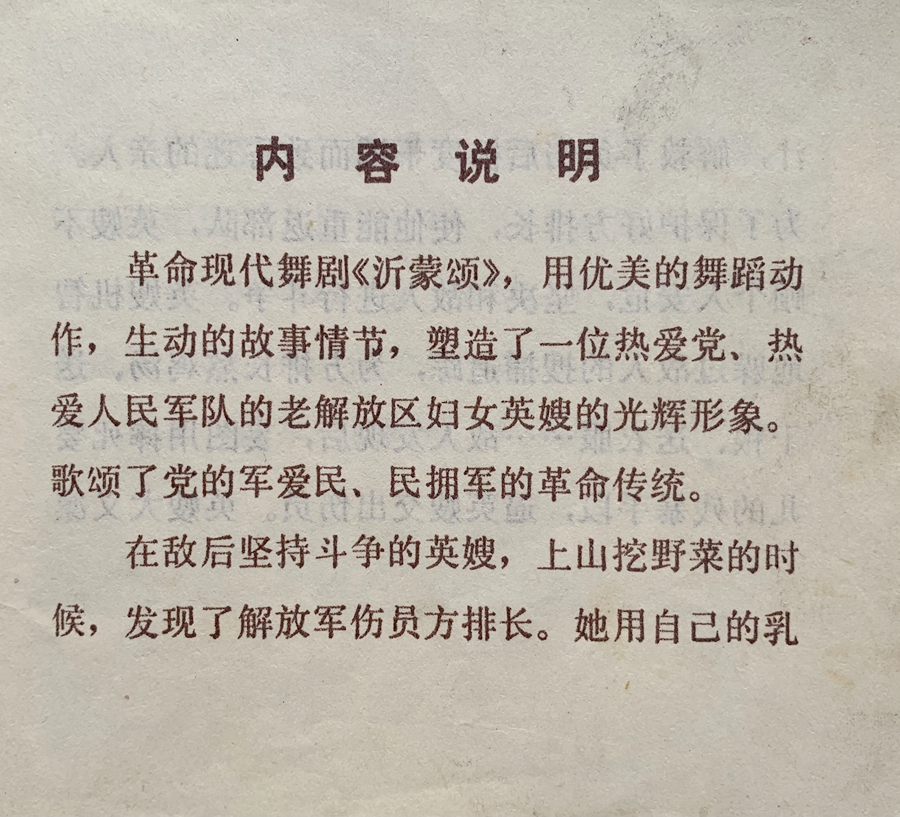 内容说明
革命现代舞剧《沂蒙颂》，用优美的舞蹈动
作，生动的故事情节，塑造了一位热爱党、热
爱人民军队的老解放区妇女英嫂的光辉形象。
歌颂了党的军爱民、民拥军的革命传统。
在敌后坚持斗争的英嫂，上山挖野菜的时
候，发现了解放军伤员方排长。她用自己的乳